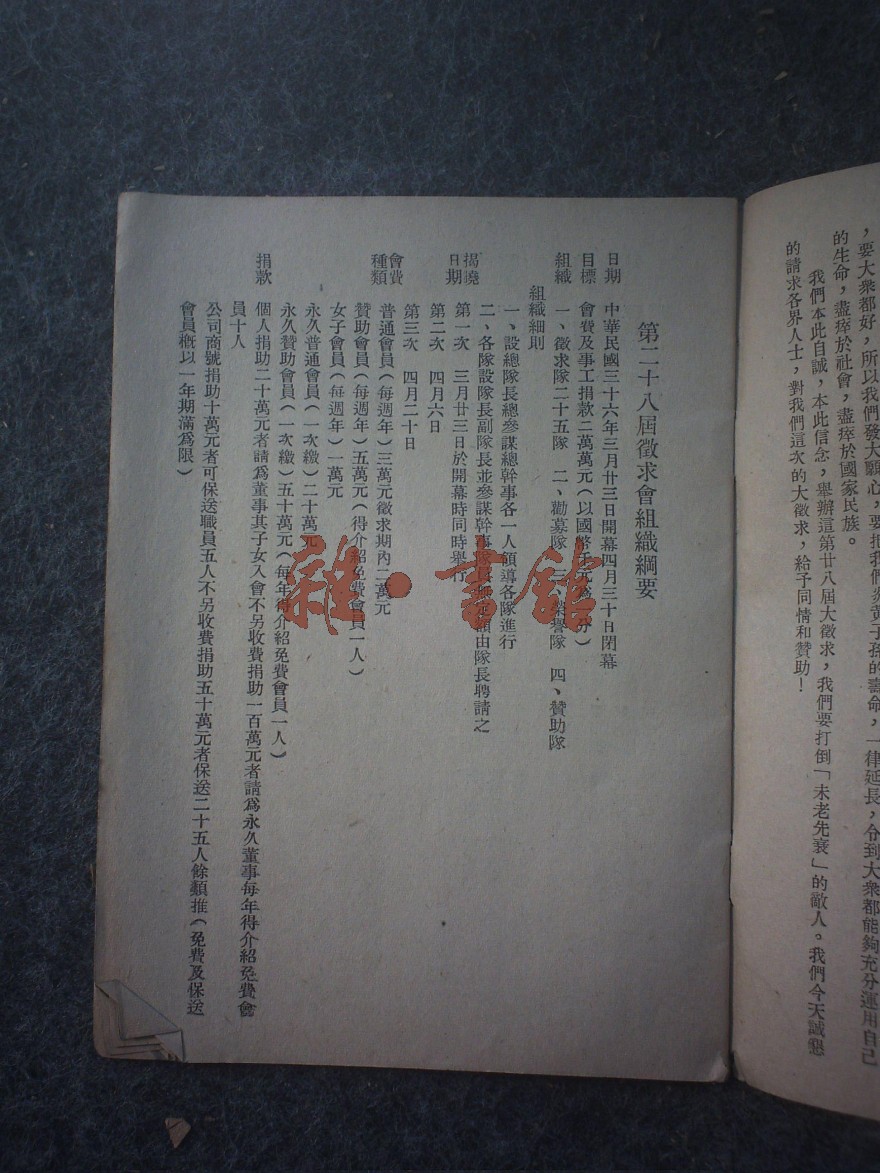 ，要大衆都好，所以我們發大願心，要把我們炎黃子孫的壽命，一律延長，令到大衆都能夠充分運用自己
的生命，盡瘁於社會，盡瘁於國家民族。
我們本此自誠，本此信念，舉辦這第廿八屆大徵求，我們要打倒「未老先衰」的敵人。我們今天誠懇
的請求各界人士，對我們這次的大徵求，給予同情和贊助！
第二十八屆徵求會組織綱要
日期 中華民國三十六年三月廿三日開幕四月三十日閉幕
目標 會費及事工捐款二萬萬元（以國幣千元為一分）
組織 一、徵求隊二十五隊 二、勸募隊 三、榮譽隊 四、贊助隊
組織細則
一、設總隊長總參謀總幹事各一人領導各隊進行
二、各隊設隊長副隊長並參謀幹事隊員由隊長聘請之
揭曉日期 第一次 三月廿三日於開幕時同時舉行
第二次 四月六日
第三次 四月二十日
會費種類 普通會員（每週年）三萬元徵求期內二萬元
贊助會員（每週年）五萬元（得介紹免費會員一人）
女子會員（每週年）一萬元
永久普通會員（一次繳）二十萬元
永久贊助會員（一次繳）五十萬元（每年得介紹免費會員一人）
捐款 個人捐助二十萬元者請爲董事其子女入會不另收費捐助一百萬元者請爲永久董事每年得介紹免費會
員十人
公司商號捐助十萬元者可保送職員五人不另收費捐助五十萬元者保送二十五人餘類推（免費及保送
會員概以一年期滿爲限）
雜·書館